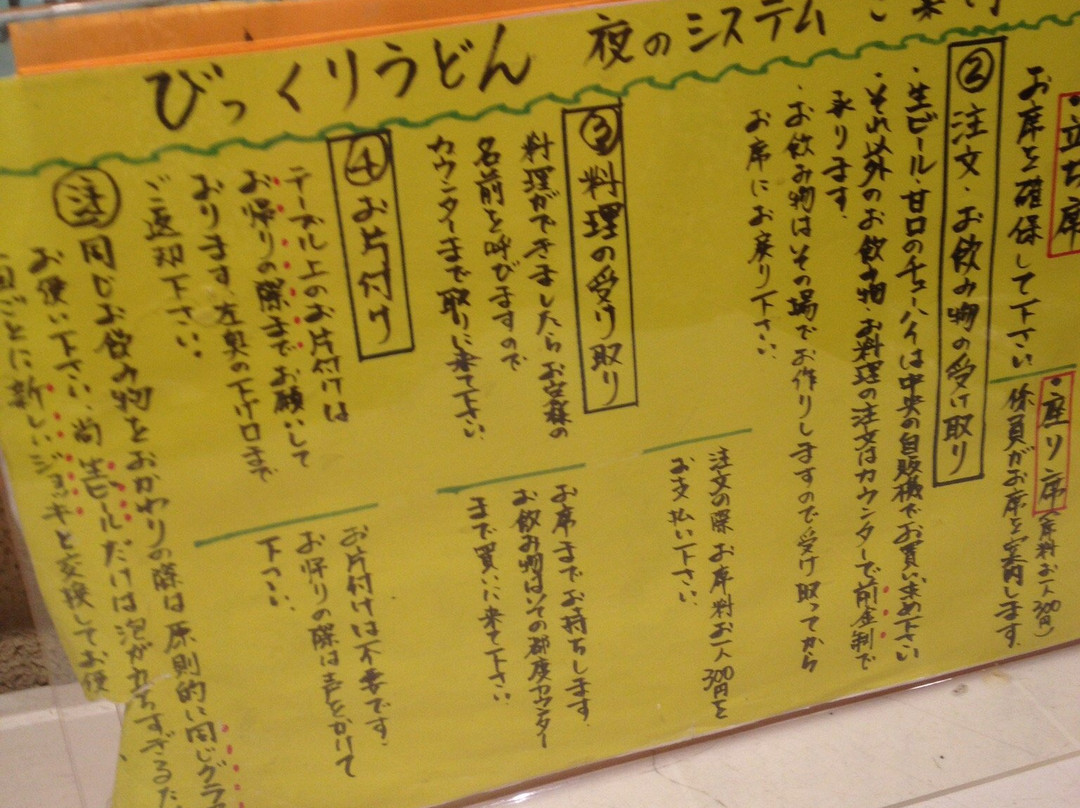 びっくりうどん 夜のシステム ご案内
・立ち席
お席を確保して下さい
・座り席(席料お一人300円)
係員がお席を案内します。
②注文・お飲み物の受け取り
・生ビール 甘口のチューハイは中央の自販機でお買い求め下さい
・それ以外のお飲み物・お料理の注文はカウンターで前金制で
承ります。
・お飲み物はその場でお作りしますので受け取ってから
お席にお戻り下さい。
注文の際 お席料お一人300円を
お支払い下さい。
③料理の受け取り
料理ができましたらお客様の
名前を呼びますので
カウンターまで取りに来て下さい。
お席までお持ちします。
お飲み物はその都度カウンター
まで買いに来て下さい。
④お片付け
テーブル上のお片付けは
お帰りの際までお願いして
おります。左奥の下げ口まで
ご返却下さい。
お片付けは不要です。
お帰りの際は声をかけて
下さい。
注 同じお飲み物をおかわりの際は原則的に同じグラ
お使い下さい。尚 生ビールだけは泡がたちすぎるた
回ごとに新しいジョッキと交換してお使